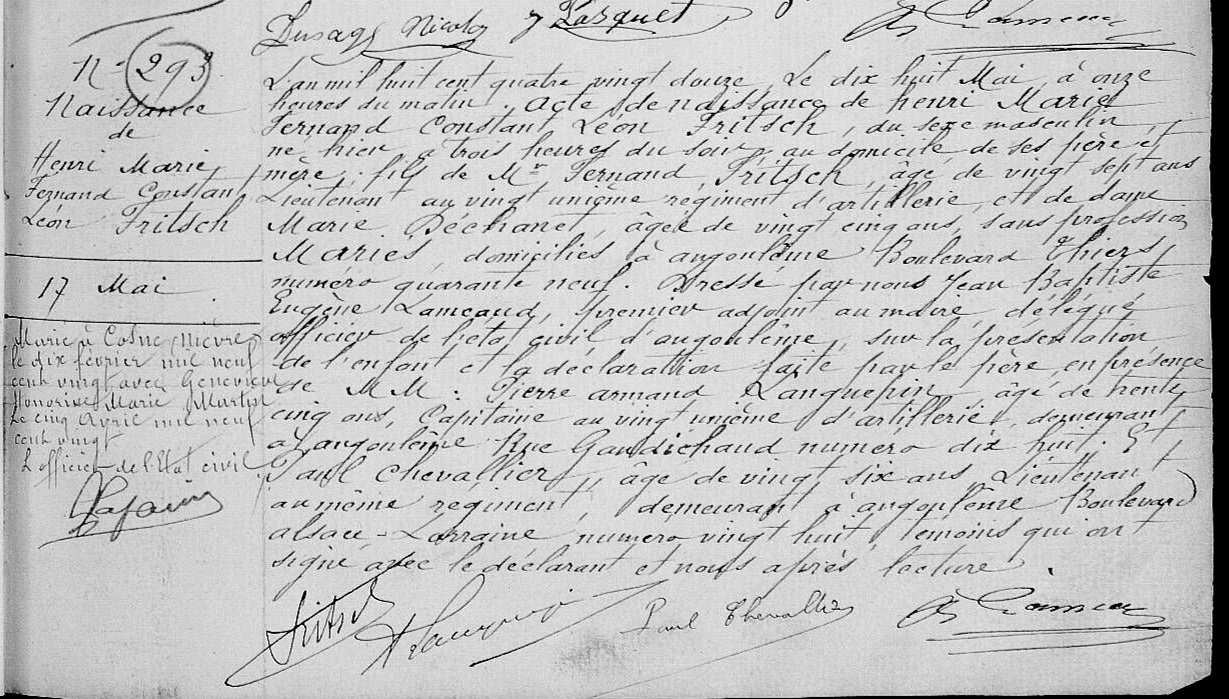 Dusage Nicolas Pasquet
N° 293
Naissance
de
Henri Marie
Fernand Constant
Léon Fritsch
17 Mai
Marié à Cosne, Nièvre
le dix février mil neuf
cent vingt avec Geneviève
Honorine Marie Martin
Le cinq Avril mil neuf
cent vingt
L'officier de l'Etat civil
L'an mil huit cent quatre vingt douze, Le dix huit Mai, à onze
heures du matin. Acte de naissance de henri Marie
Fernand Constant Léon Fritsch, du sexe masculin,
né hier, à trois heures du soir, au domicile de ses père et
mère, fils de Mr Fernand, Fritsch, âgé de vingt sept ans
Lieutenant au vingt unième régiment d'artillerie, et de dame
Marie Déchanet, âgée de vingt cinq ans, sans profession
Mariés, domiciliés à angoulême Boulevard Thiers,
numéro quarante neuf. Dressé par nous Jean Baptiste
Eugène Lameaud, premier adjoint au maire, délégué
officier de l'état civil d'angoulême, sur la présentation
de l'enfant et la déclaration faite par le père, en présence
de MM. Pierre armand Languepin, âgé de trente
cinq ans, Capitaine au vingt unième d'artillerie, demeurant
à angoulême Rue Gaudichaud numéro dix huit. Et,
Paul Chevallier, âgé de vingt six ans, Lieutenant
au même régiment, demeurant à angoulême Boulevard
alsace-Lorraine, numéro vingt huit, témoins qui ont
signé avec le déclarant et nous après lecture.
Fritsch Languepin Paul Chevallier